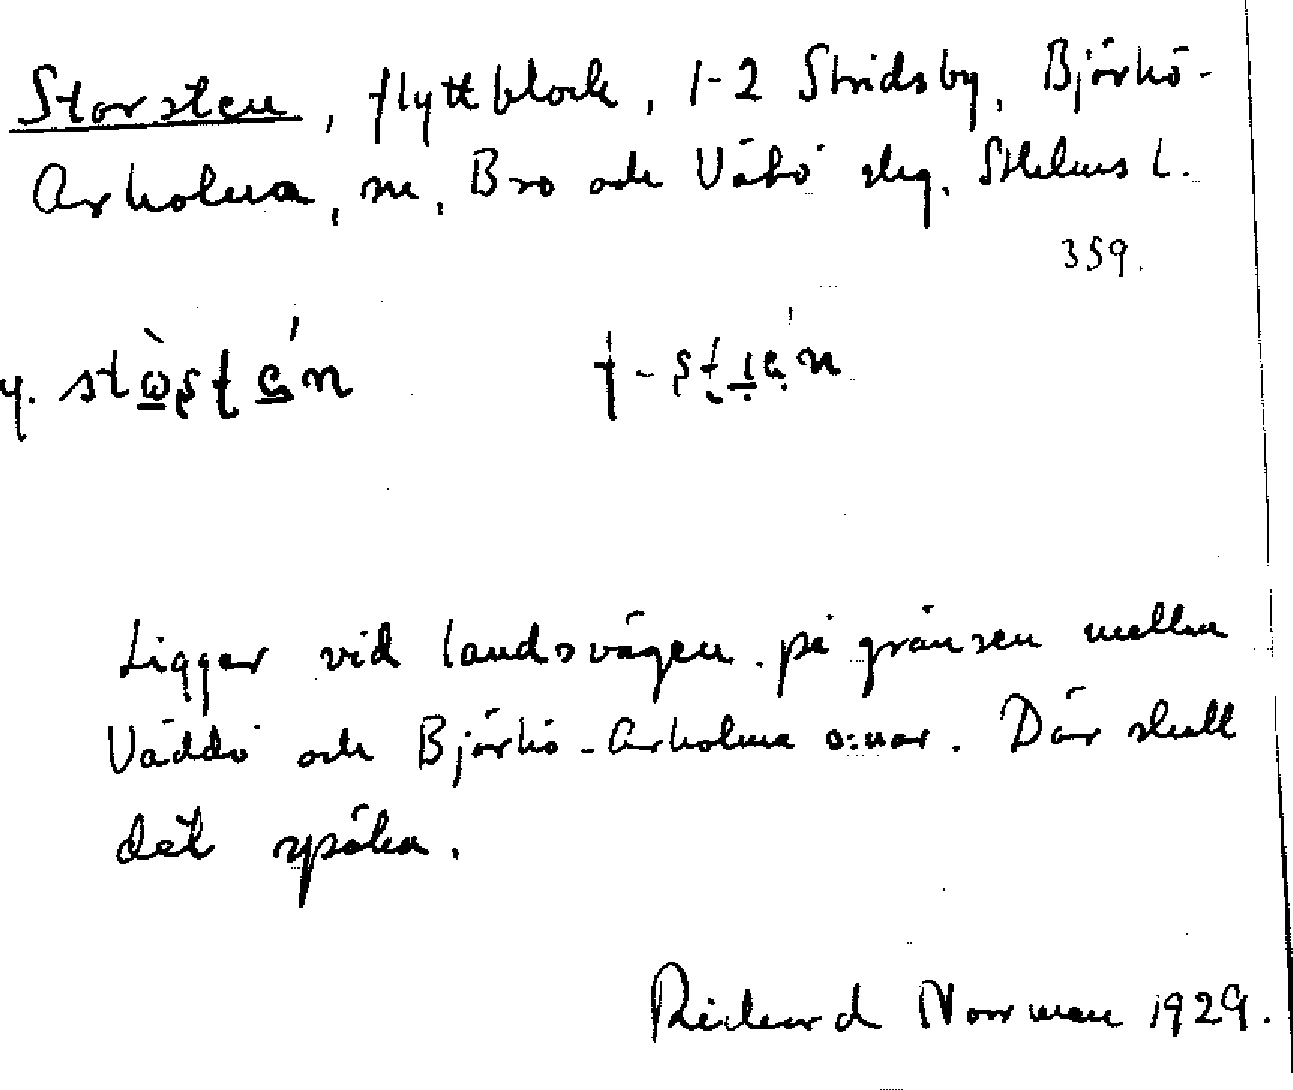 Storsten, flyttblock, 1-2 Stridsby, Björkö-
Arholma, sn, Bro och Vätö slg. Sthlms l.
359.
Ligger vid landsvägen på gränsen mellan
Väddö och Björkö-Arholma s:nar. Där skall
det spöka.
Rickard Norrman 1929.